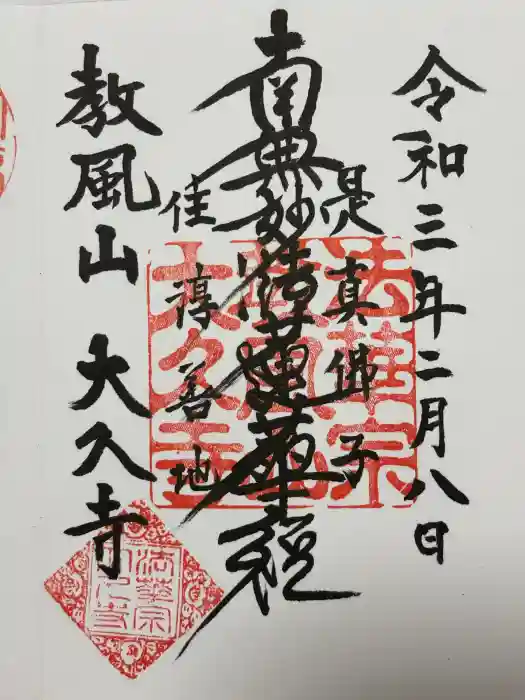 令和三年二月八日
是真佛子
南無妙法蓮華経
住淳善地
教風山 大久寺
法華宗
大久寺
法華宗